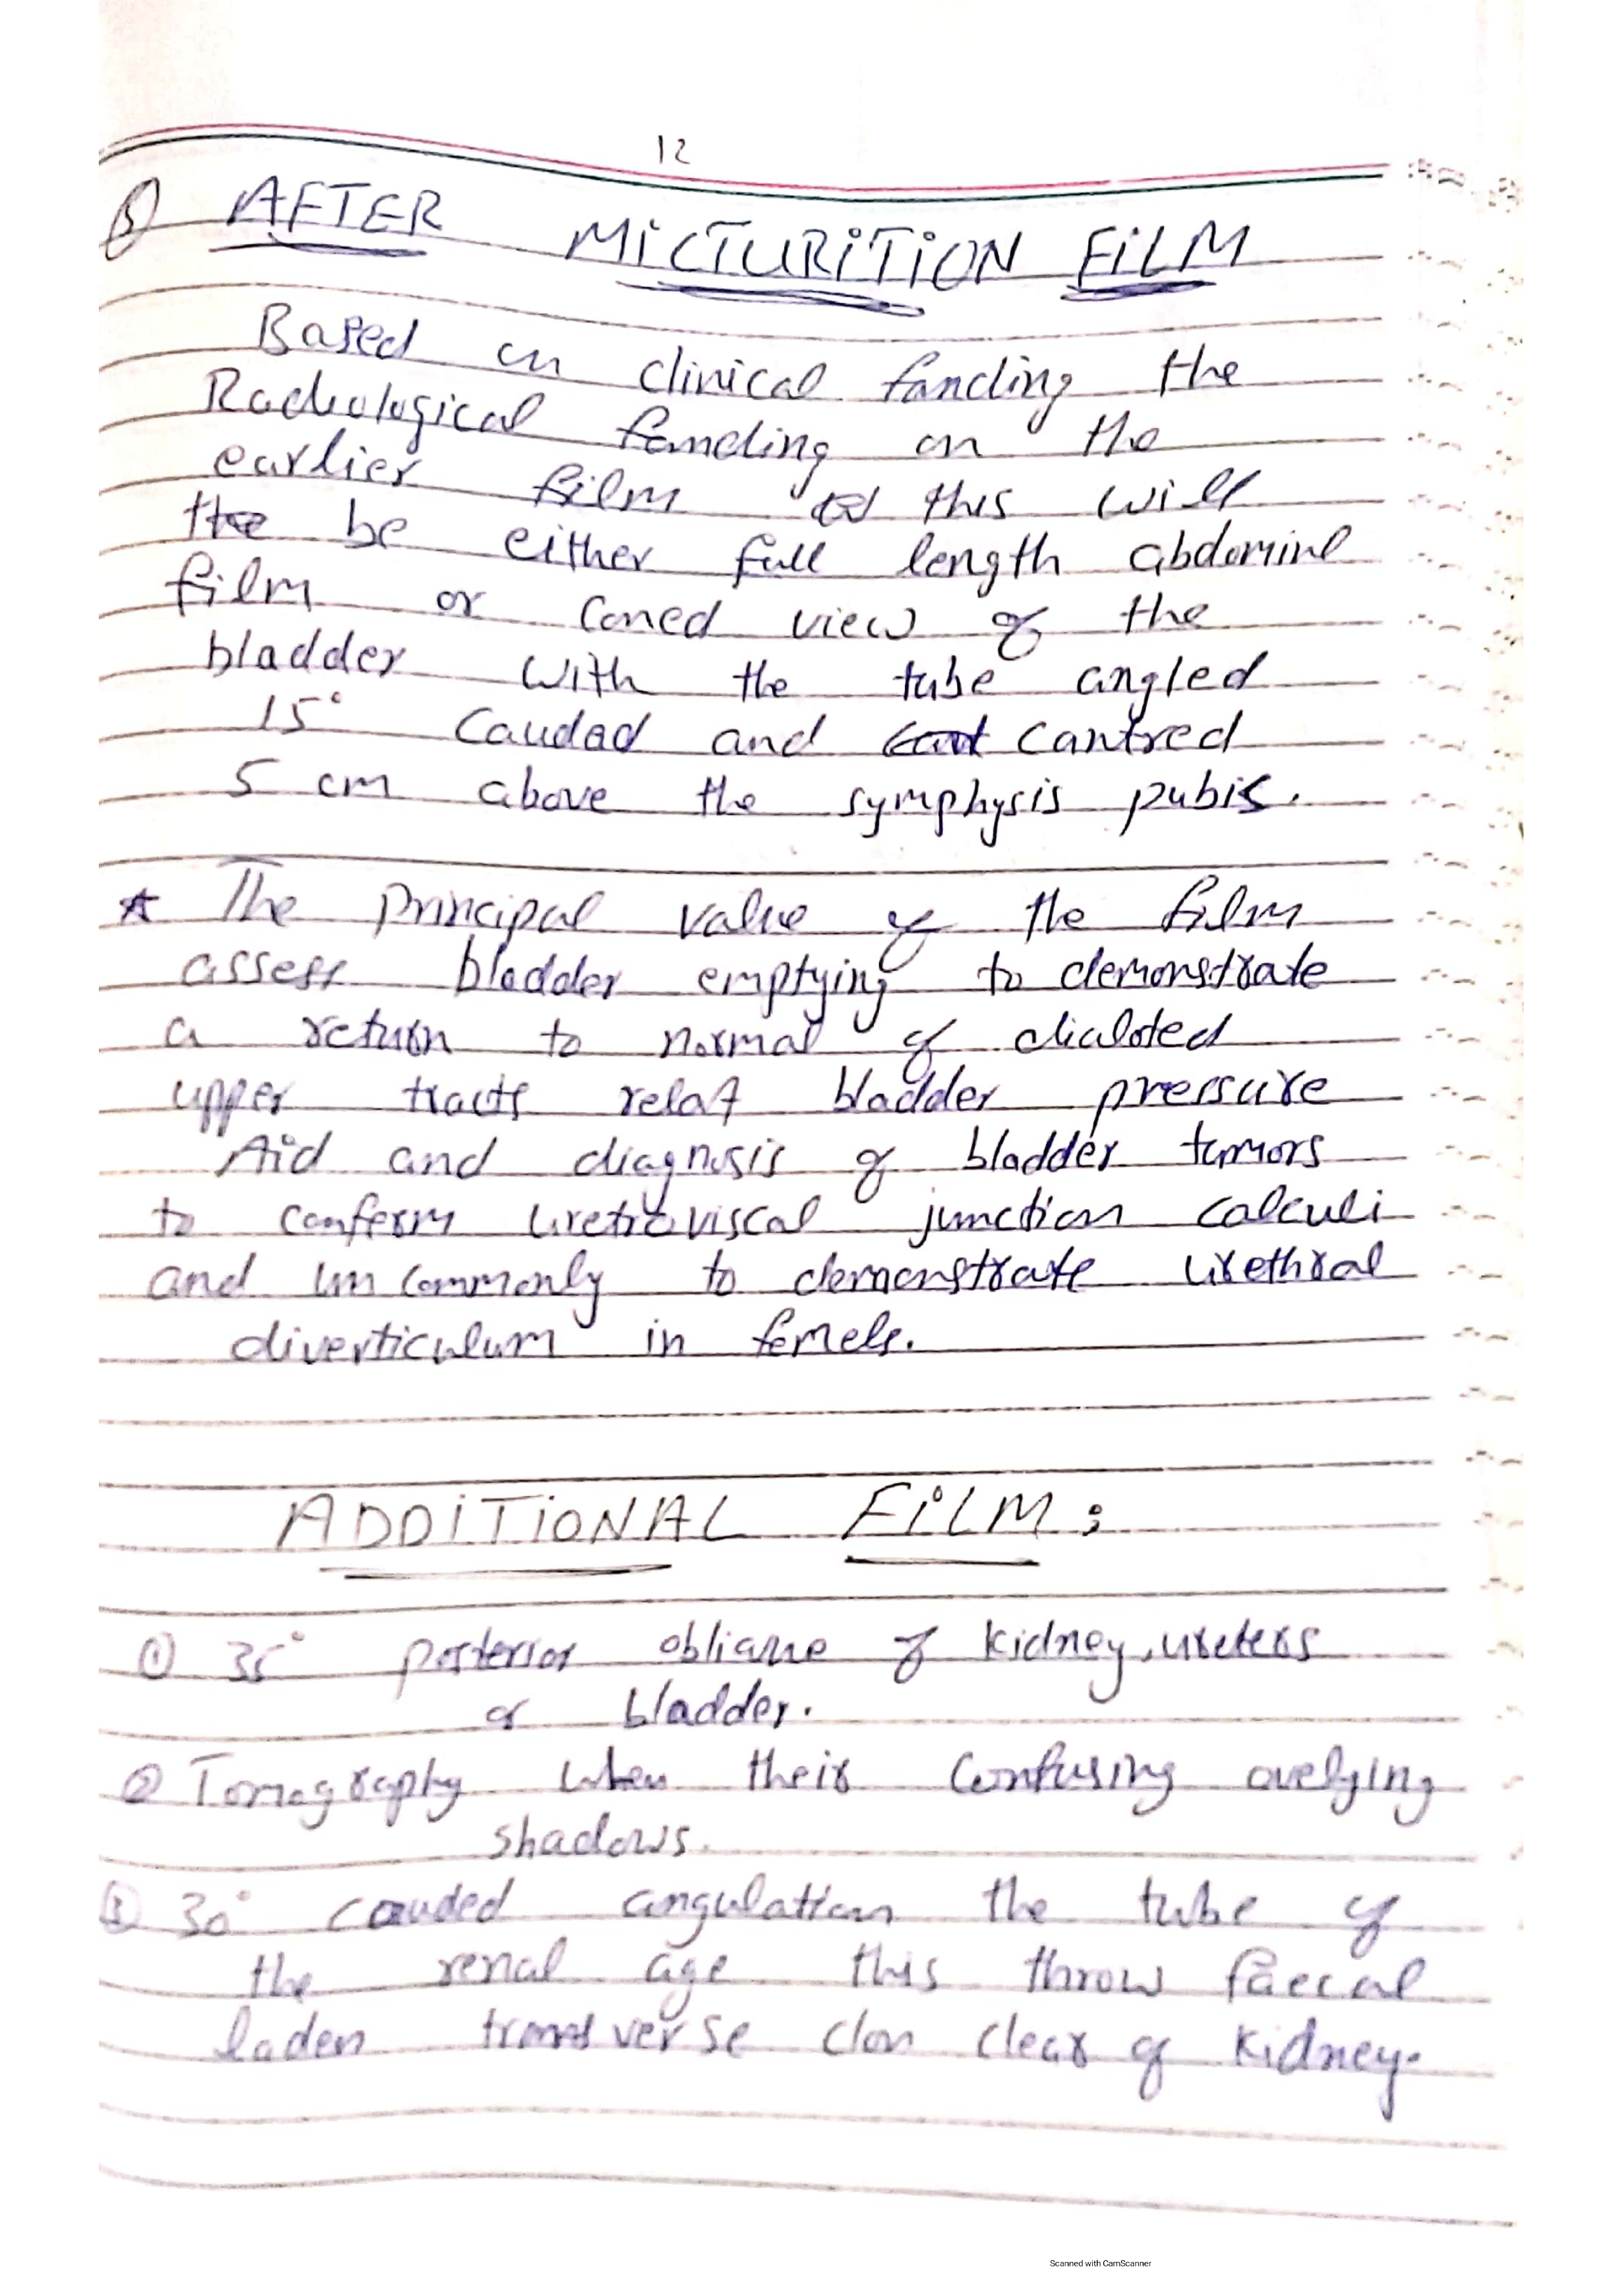 12
AFTER MICTURITION FILM
Based on clinical fanding the
Radiological fanding on the
earlier film this will
the be either full length abdominl
film or coned view of the
bladder with the tube angled
15° Caudad and Cant Cantred
5 cm above the symphysis pubis.
★ The principal value of the film
assess bladder emptying to demonstrate
a return to normal of dialoted
upper tracts relaf bladder pressure
Aid and diagnosis of bladder tumors
to conferm uretroviscal junction calculi
and un commonly to demonstrate urethral
diverticulum in femele.
ADDITIONAL FILM:
① 35° posterior obliqune of kidney, ureters
or bladder.
② Tomography when their Confusing ovelying
shadows.
③ 30° cauded angulation the tube of
the renal age this throw faecal
laden transverse clon clear of kidney.
Scanned with CamScanner